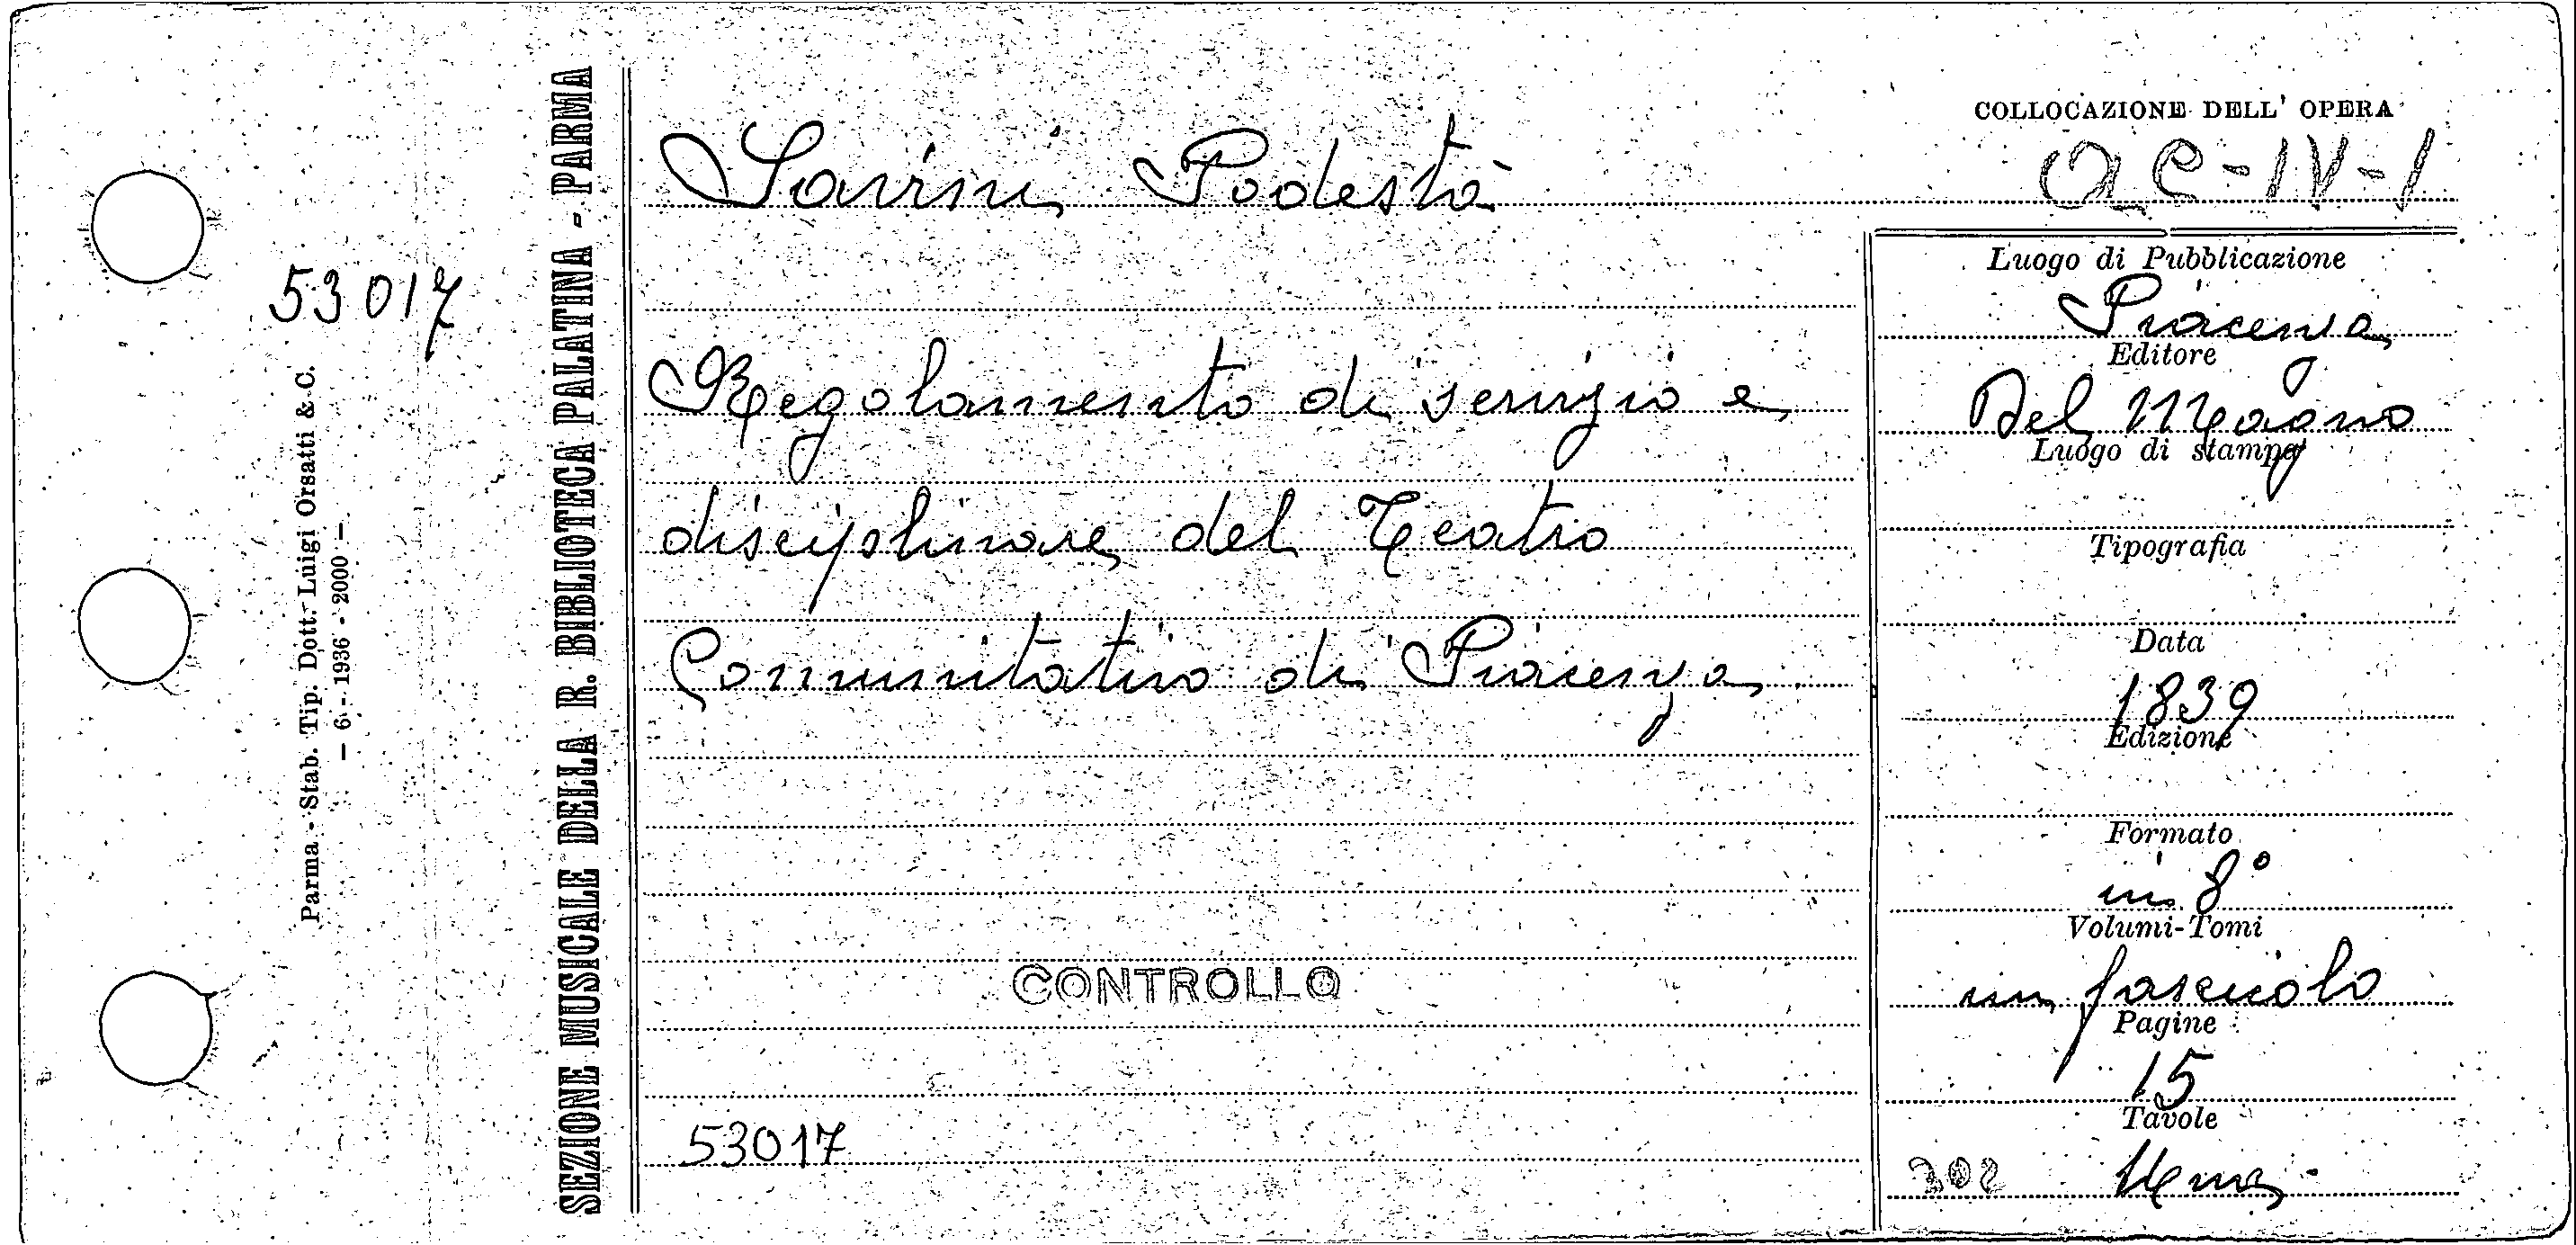 53017
Parma - Stab. Tip. Dott. Luigi Orsatti & C.
- 6 - 1936 - 2000 -
SEZIONE MUSICALE DELLA R. BIBLIOTECA PALATINA - PARMA
Savini Podestà
Regolamento di servizio e
disciplinare del Teatro
Communitativo di Piacenza
CONTROLLO
53017
COLLOCAZIONE DELL' OPERA
IV-1
Luogo di Pubblicazione
Piacenza
Editore
Del Magno
Luogo di stampa
Tipografia
Data
1839
Edizione
Formato
in 8°
Volumi-Tomi
un fascicolo
Pagine
15
Tavole
302 Una